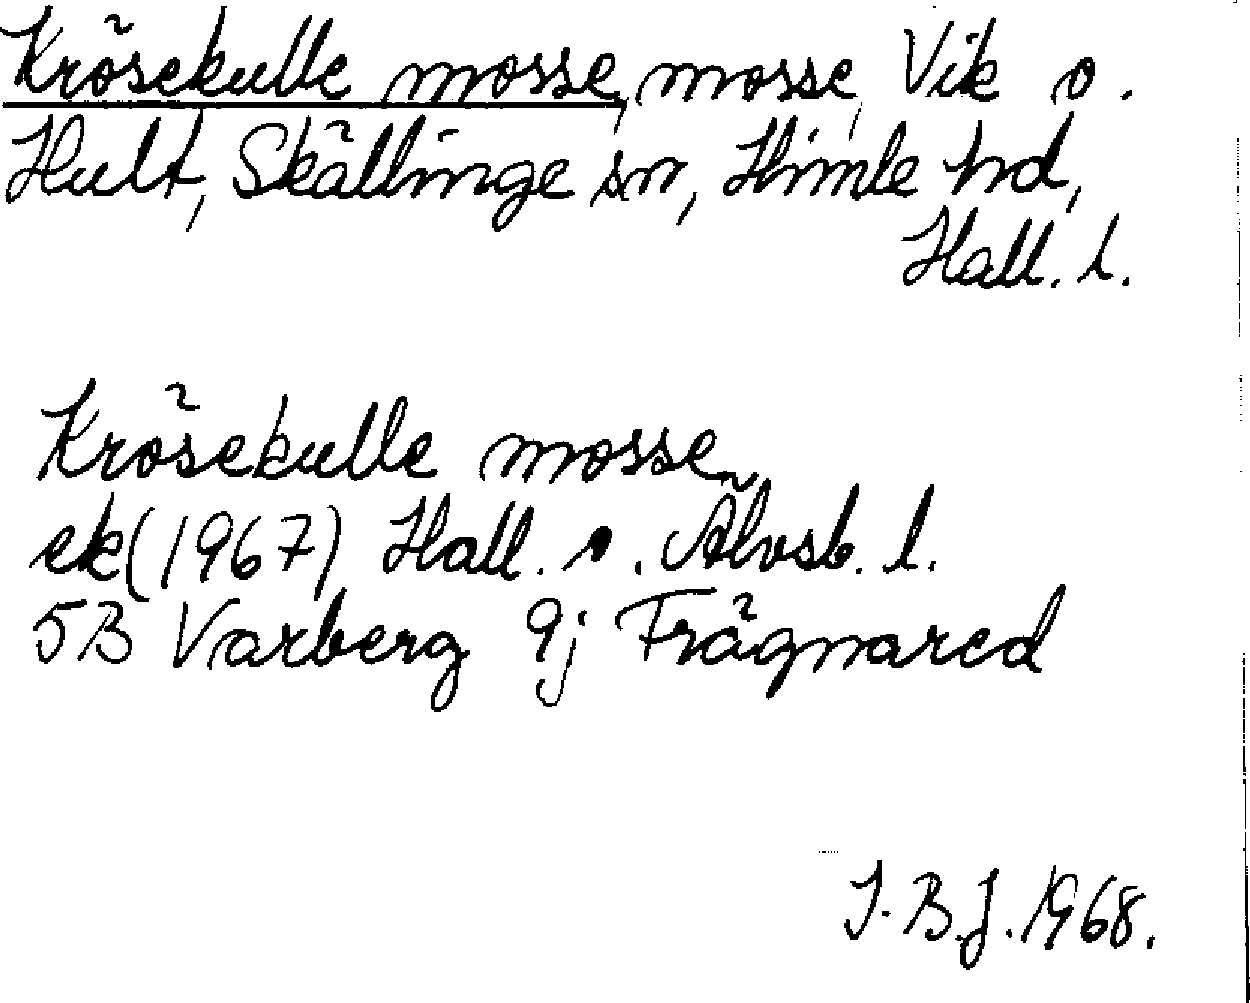 Krösekulle mosse, mosse, Vik o.
Hult, Skällinge sn, Himle hd,
Hall. l.
Krösekulle mosse
ek (1967) Hall. o. Älvsb. l.
5B Varberg 9j Frägnared
J. B. J. 1968.